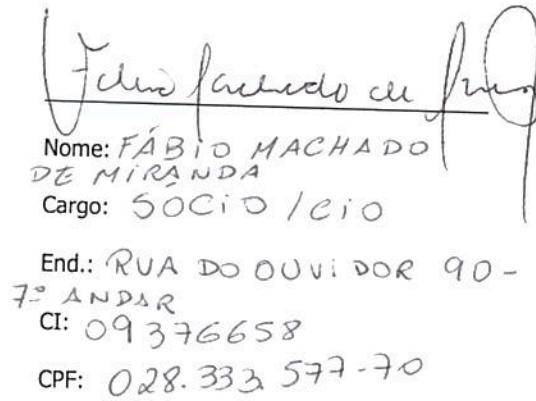 Fábio Machado de
Nome: FÁBIO MACHADO
DE MIRANDA
Cargo: SÓCIO / CIO
End.: RUA DO OUVIDOR 90-
7º ANDAR
CI: 09376658
CPF: 028.333.577-70